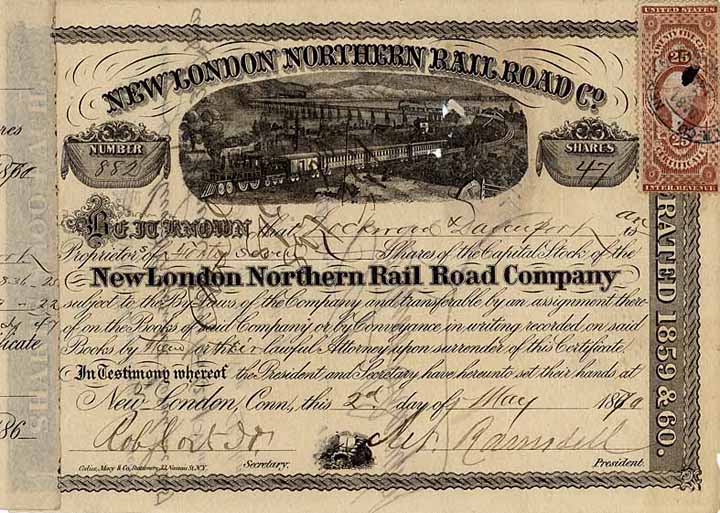 NEW LONDON NORTHERN RAIL ROAD Co.
UNITED STATES
25
25
CERTIFICATE
INTER. REVENUE
NUMBER
882
SHARES
47
BE IT KNOWN that Lockwood & Davenport are
Proprietors of Forty Seven Shares of the Capital Stock of the
New London Northern Rail Road Company
subject to the By-Laws of the Company and transferable by an assignment there-
of on the Books of said Company, or by Conveyance in writing recorded on said
Books by them or their lawful Attorney upon surrender of this Certificate.
In Testimony whereof the President and Secretary have hereunto set their hands at
New London, Conn., this 2d day of May 18
Secretary.
Ramsdell
President.
Corlies, Macy & Co., Stationers, 33, Nassau St. N.Y.
ORATED 1859 & 60.
SHARES
ares
icate
186